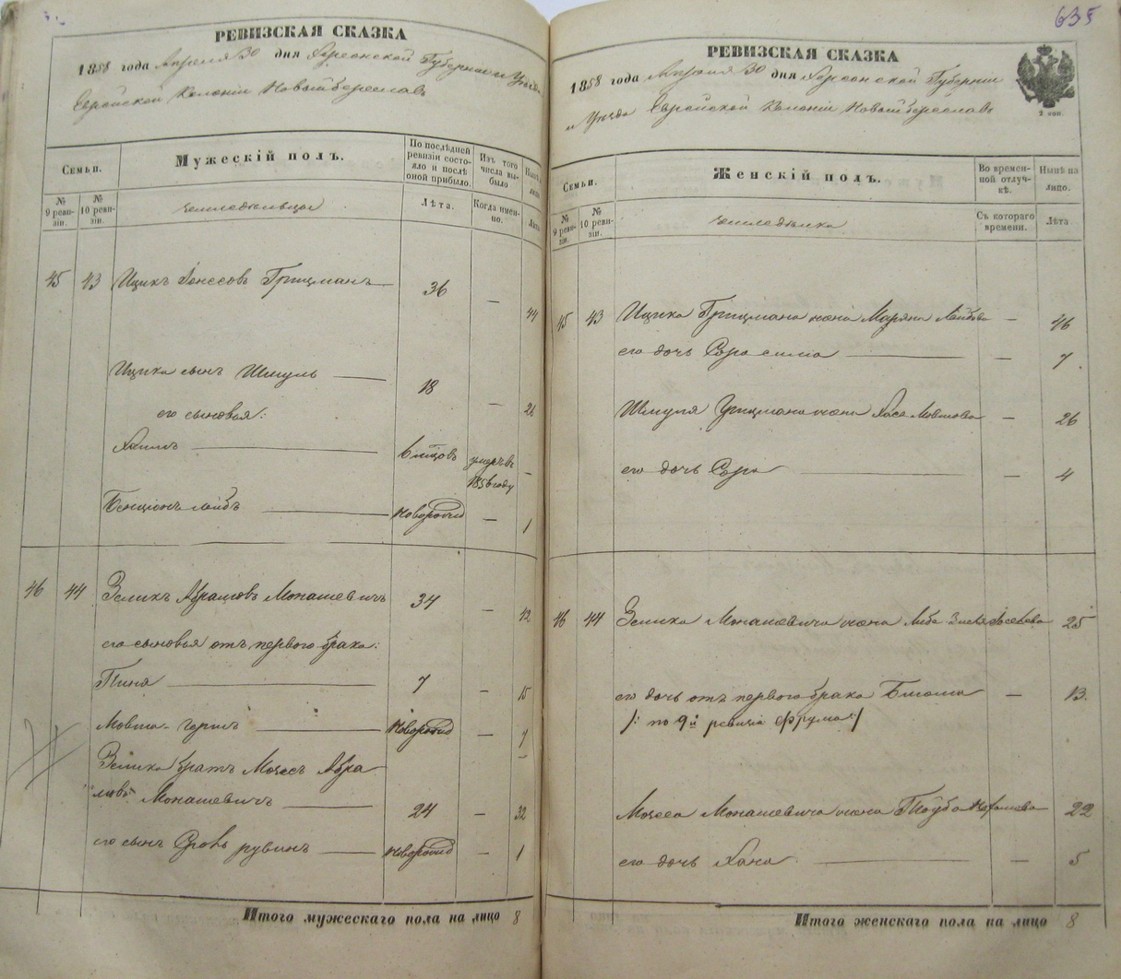 РЕВИЗСКАЯ СКАЗКА
1858 года Апреля 30 дня Херсонской Губернии и Уезда
Еврейской Колоніи Новый береслав
Семьи.
Мужескій полъ.
По послѣдней ревизіи состояло и послѣ оной прибыло.
Изъ того числа выбыло
№ 9 ревизіи.
№ 10 ревизіи.
Лѣта.
Когда именно.
Лѣта
45 43 Ицикъ Грицманъ 36 — 44
Ицика сынъ Шмуль 18 — 26
его сыновья:
Хаимъ умеръ въ 1856 году —
Бенціонъ лейбъ Новорожд — 1
46 44 Зеликъ Абрамовъ Монашевичъ 34 — 42
его сыновья отъ первого брака:
Пиня 7 — 15
Мовша Новорожд —
Зелика братъ Мозес Абра
мовъ Монашевичъ 24 — 32
его сынъ рувинъ Новорожд — 1
Итого мужескаго пола на лицо 8
635
РЕВИЗСКАЯ СКАЗКА
1858 года Апреля 30 дня Херсонской Губерніи
и Уезда Еврейской Колоніи Новый береславъ
Семьи.
Женскій полъ.
Во временной отлучкѣ.
Нынѣ на лицо.
№ 9 ревизіи.
№ 10 ревизіи.
Съ котораго времени.
Лѣта
45 43 Ицика Грицмана жена Марьяна Лейбова — 46
его дочь Сора сима — 7
Шмуля Грицмана жена Хася — 26
его дочь Сура — 4
46 44 Зелика Монашевича жена Либа 25
его дочь отъ первого брака Блюма — 13
/: по 9й ревизіи фрума :/
Мозеса Монашевича жена Тауба 22
его дочь Хана — 5
Итого женскаго пола на лицо 8